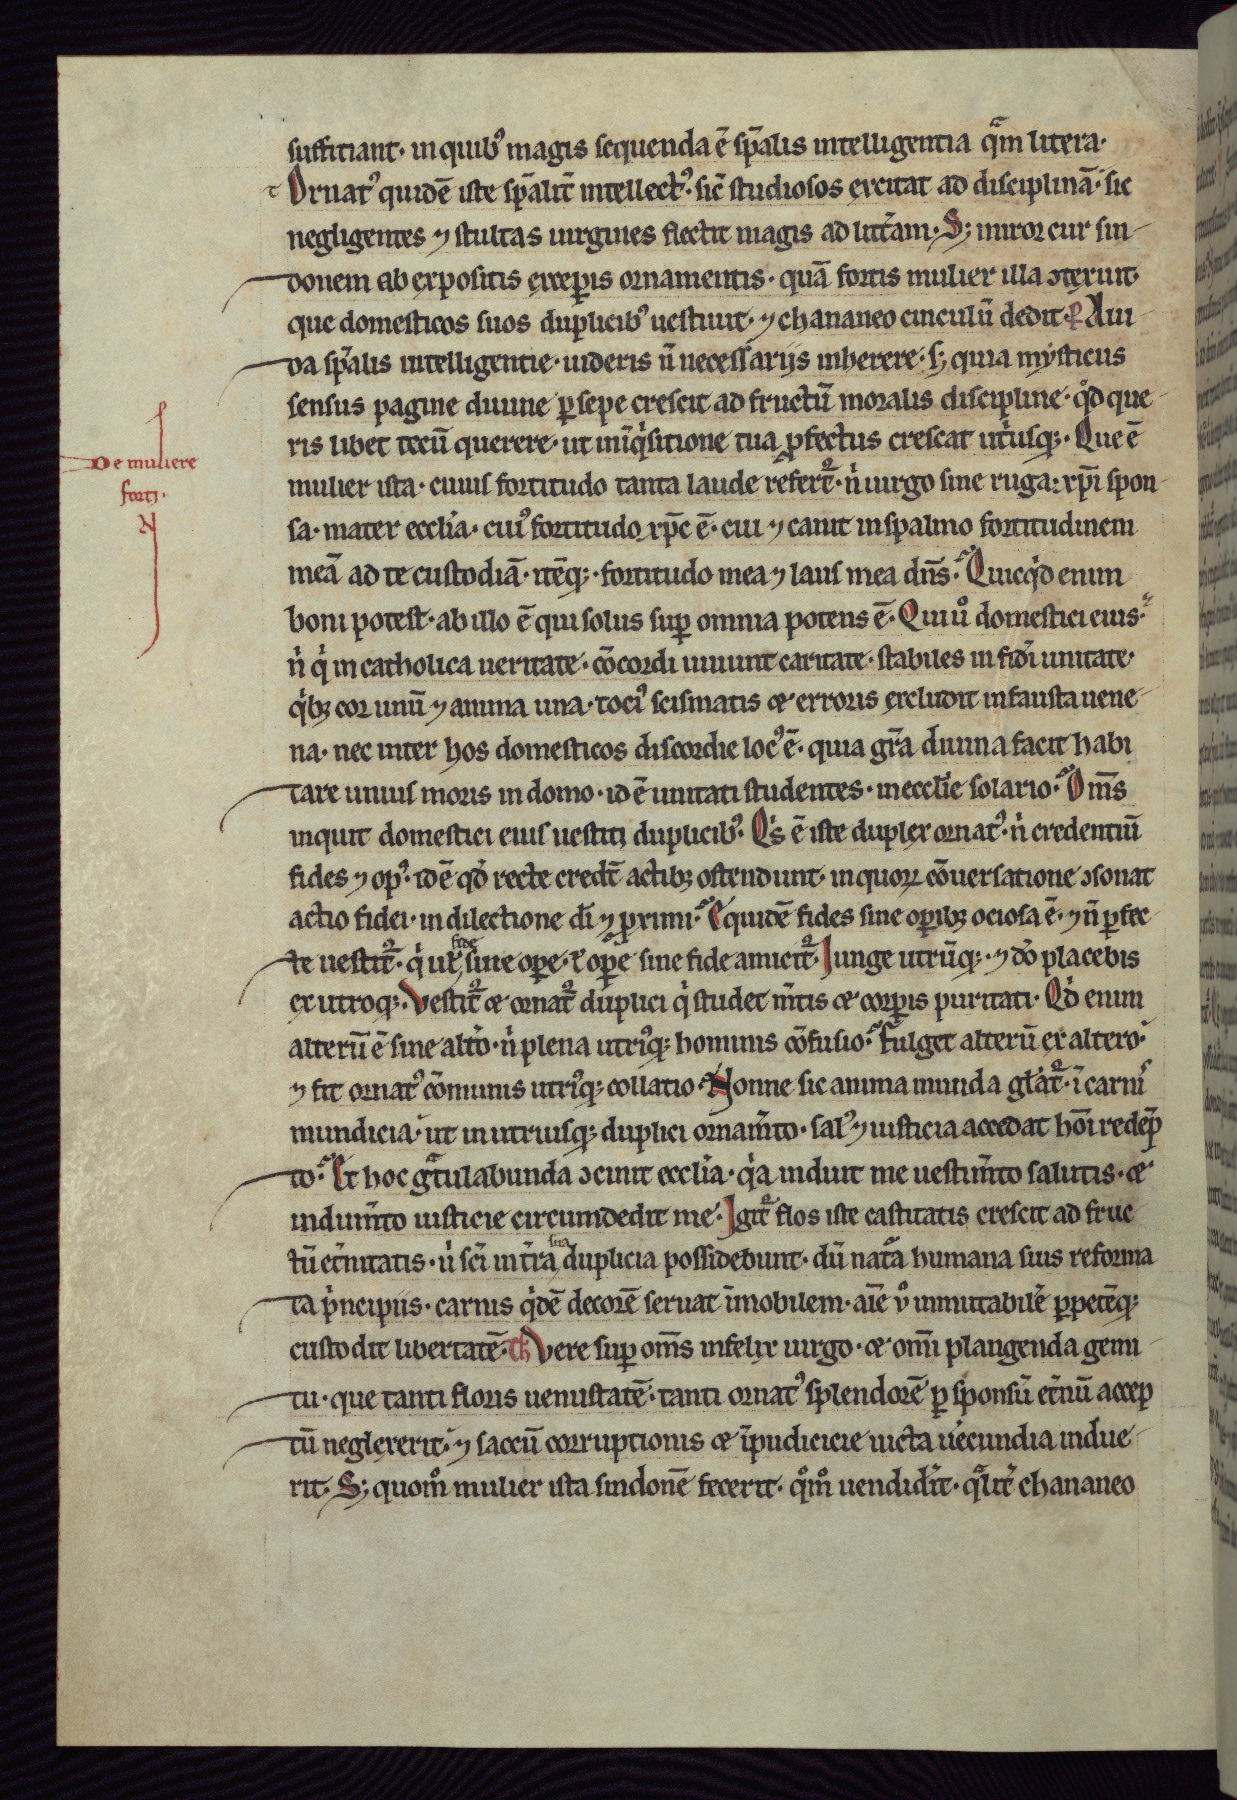 suffitiant· in quib᷒ magis sequenda ē sp̄alis intelligentia q̄m litera·
Ornat᷒ quidē iste sp̄alit̄ intellect᷒· sic̄ studiosos excitat ad disciplinā· sic
negligentes ⁊ stultas uirgines flectit magis ad litt̄am· Sꝫ miror cur sin-
donem ab expositis exceꝑis ornamentis· quā fortis mulier illa ꝯtexuit·
que domesticos suos duplicib᷒ uestiuit· ⁊ chananeo cinculū dedit· P Aui-
da sp̄alis intelligentie· uideris n̄ necessarijs inherere· sꝫ quia mysticus
sensus pagine diuine ꝑsepe crescit ad fructū moralis discipline· qd̓ que-
ris libet tecū querere· ut inq̓sitione tua ꝓfectus crescat ut̓usqꝫ· Que ē
mulier ista· cuius fortitudo tanta laude refert᷑· n̓ uirgo sine ruga: xp̄i spon-
sa· mater eccl̓ia· cui᷒ fortitudo xp̄c ē· cui ⁊ canit in spalmo fortitudinem
meā ad te custodiā· itēqꝫ· fortitudo mea ⁊ laus mea dn̄s· Quicq̓d enim
De muliere
forti·
N
boni potest· ab illo ē qui solus suꝑ omnia potens ē· Qui uͦ domestici eius·
n̓ q̓ in catholica ueritate· cōcordi uiuunt caritate· stabiles in fidi unitate·
q̓bꝫ cor unū ⁊ anima una· toci᷒ scismatis & erroris excludit infausta uene-
na· nec inter hos domesticos discordie loc᷒ ē· quia gr̄a diuina facit habi
tare unius moris in domo· id ē unitati studentes· in eccl̓ie solario· Om̄s
inquit domestici eius uestiti duplicib᷒· Q̓s ē iste duplex ornat᷒· n̓ credentiū
fides ⁊ op᷒· id ē qd̓ recte credt̄ actibꝫ ostendunt· in quoꝝ cōuersatione ꝯsonat
actio fidei· in dilectione di̓ ⁊ ꝓximi· Equidē fides sine oꝑibꝫ ociosa ē· ⁊ n̄ ꝑfec-
te uestit᷑· q̓ ul̓ fide sine oꝑe· ł oꝑe sine fide amicit᷑· Iunge utrūqꝫ· ⁊ dō placebis
ex utroqꝫ· Vestit᷑ & ornat᷑ duplici q̓ studet m̄tis & corꝑis puritati· Qd̓ enim
alterū ē sine alt̓o· n̓ plena utri᷒qꝫ hominis cōfusio· Fulget alterū ex altero·
⁊ fit ornat᷒ cōmunis utri᷒qꝫ collatio· Nonne sic anima munda gl̓at᷑· ī carnis
mundicia· ut in utriusqꝫ duplici ornam̄to· sal᷒ ⁊ iusticia accedat hōi redēp
to· Et hoc gͣtulabunda ꝯcinit eccl̓ia· q̓a induit me uestim̄to salutis· &
indum̄to iusticie circumdedit me· Igit᷑ flos iste castitatis crescit ad fruc
tū et̓nitatis· n̓ sc̄i in t̓ra sua duplicia possidebunt· dū nat᷑a humana suis reforma
ta p̓ncipiis· carnis q̓dē decorē seruat īmobilem· aīe uͦ inmutabilē ꝑpetēqꝫ
custodit libertatē· Th Vere suꝑ om̄s infelix uirgo· & om̄i plangenda gemi-
tu· que tanti floris uenustatē· tanti ornat᷒ splendorē ꝑ sponsū et̓nū accep
tū neglexerit· ⁊ saccū corruptionis & īpudicicie uicta uecundia indue-
rit· Sꝫ quoͦm mulier ista sindonē fecerit· qͦmͦ uendid̓it· qͣlit̓ chananeo